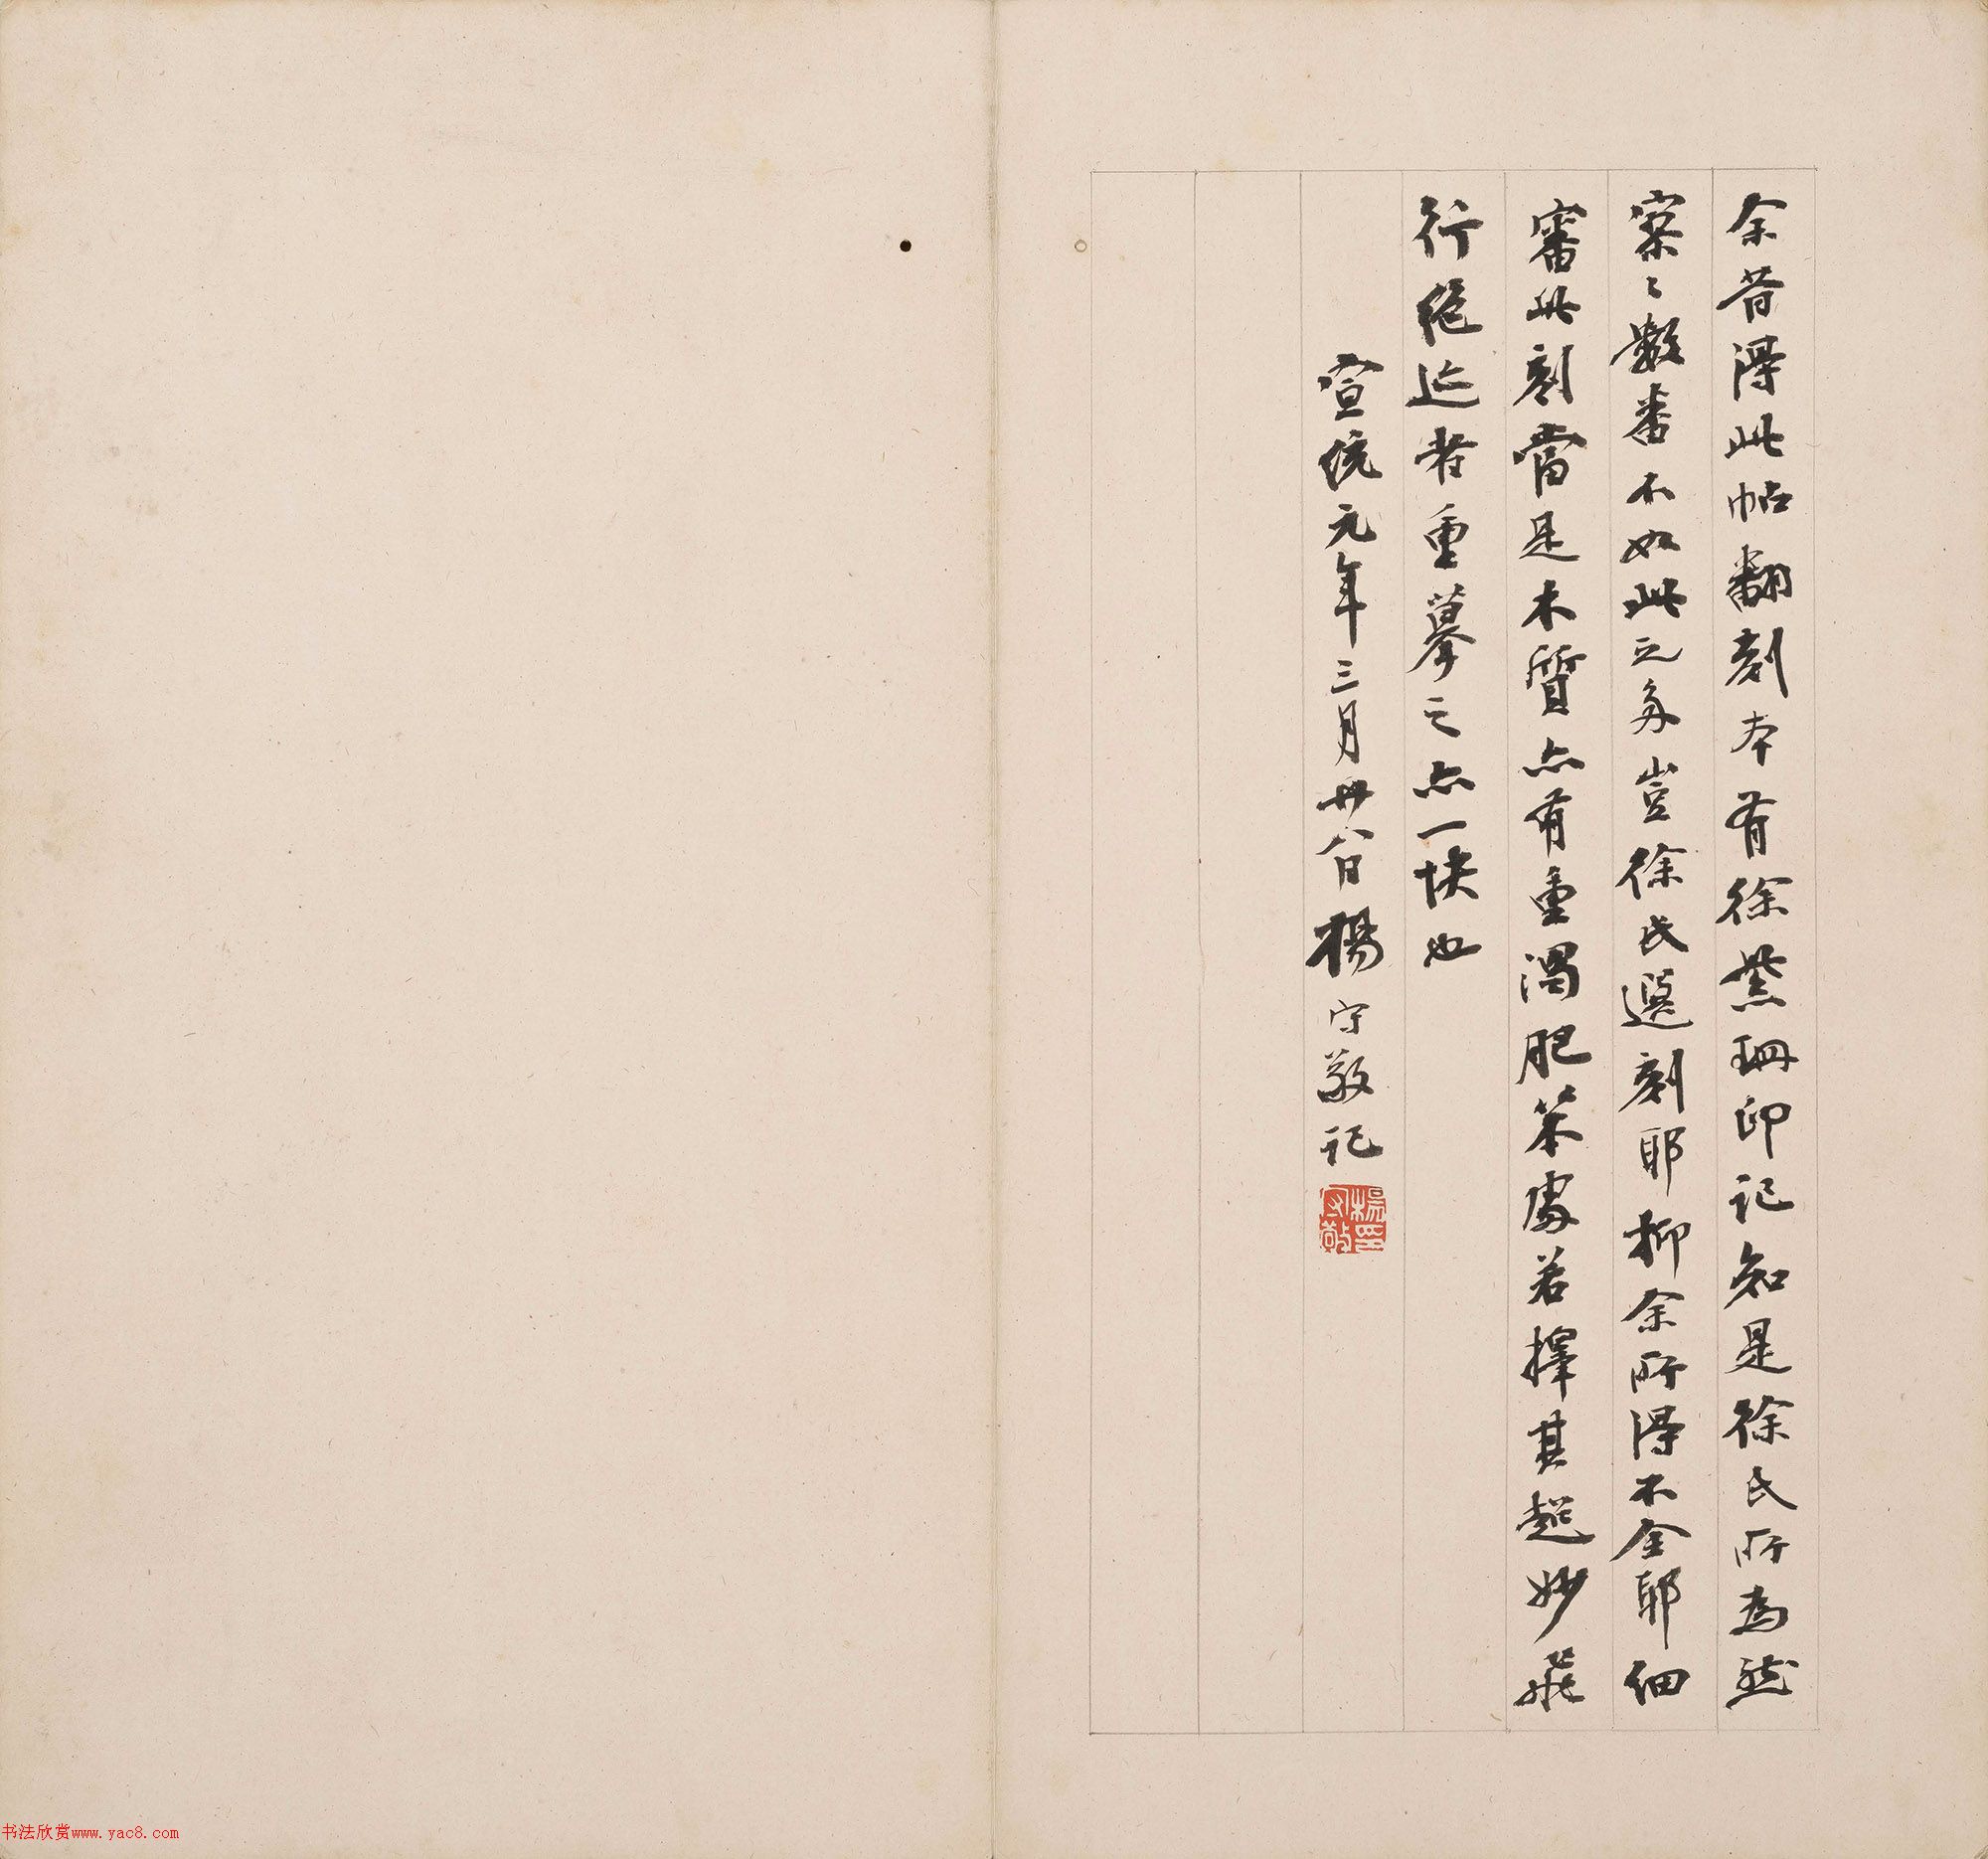 余昔得此帖翻刻本有徐紫珊印記知是徐氏所為然
寥〻數番不如此之多豈徐氏選刻耶抑余所得不全耶細
審此刻當是木質亦有重濁肥笨處若擇其超妙飛
行絕迹者重摹之亦一快也
宣統元年三月廿八日楊守敬記
楊守敬印
书法欣赏www.yac8.com